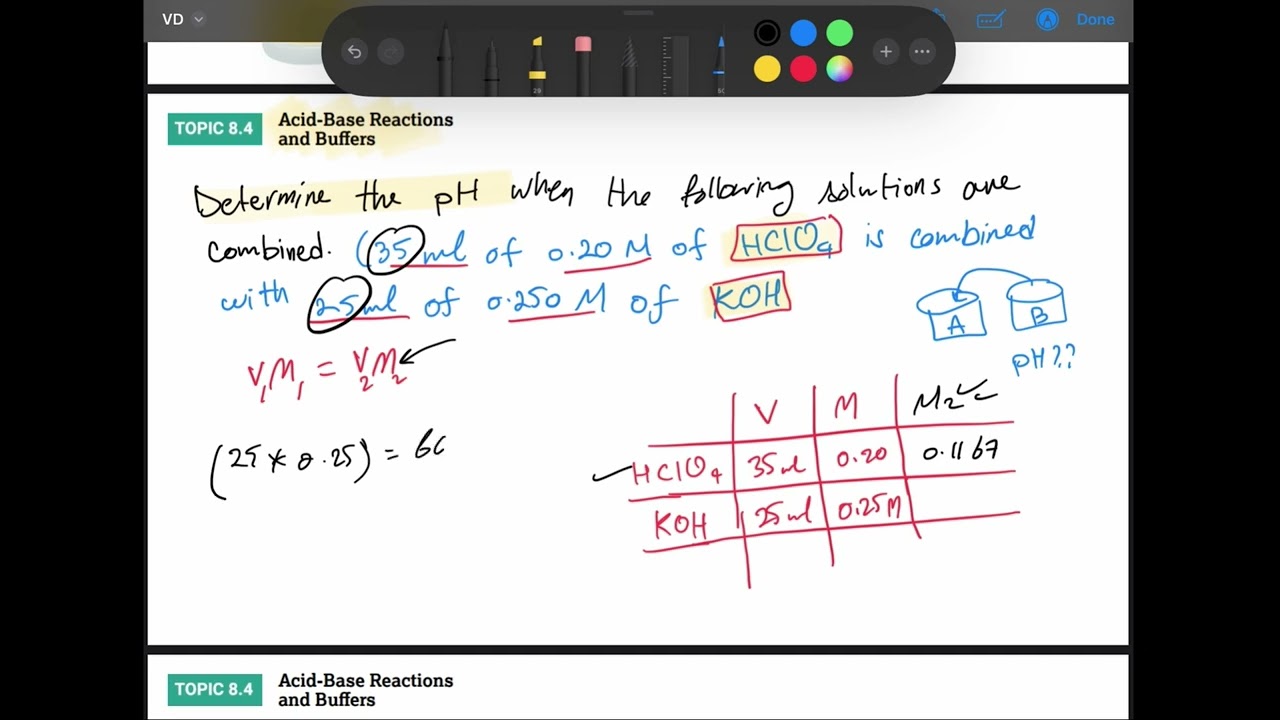 VD
Done
29
50
TOPIC 8.4
Acid-Base Reactions
and Buffers
Determine the pH when the following solutions are
combined. (35 ml of 0.20 M of HClO4 is combined
with 25 ml of 0.250 M of KOH
A
B
pH??
V1M1 = V2M2
(25 * 0.25) = 60
V M M2
HClO4 35ml 0.20 0.1167
KOH 25ml 0.25M
TOPIC 8.4
Acid-Base Reactions
and Buffers